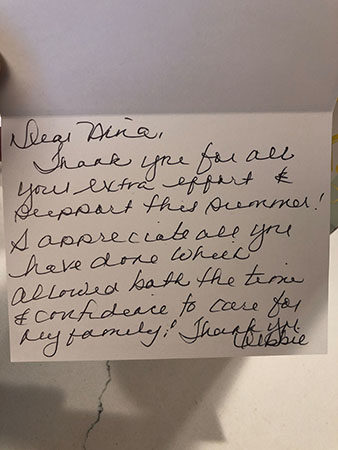 Dear Nina,
Thank you for all
your extra effort &
support this summer!
I appreciate all you
have done which
allowed both the time
& confidence to care for
my family! Thank you
Debbie